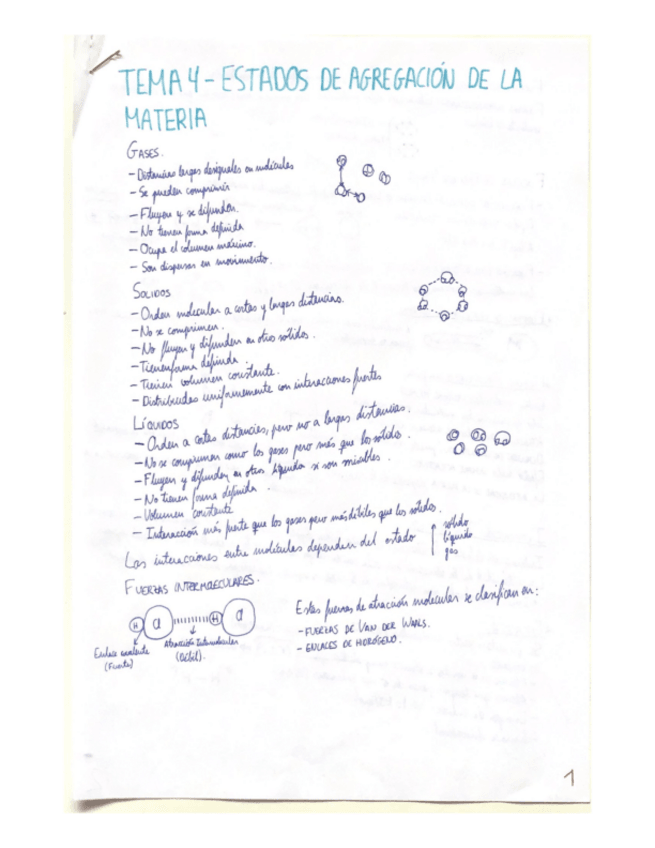 TEMA 4 - ESTADOS DE AGREGACIÓN DE LA
MATERIA
GASES.
- Distancias largas desiguales en moléculas
- Se pueden comprimir
- Fluyen y se difunden.
- No tienen forma definida
- Ocupa el volumen máximo.
- Son dispersas en movimiento.
SOLIDOS
- Orden molecular a cortas y largas distancias.
- No se comprimen.
- No fluyen y difunden en otros sólidos.
- Tienen forma definida.
- Tienen volumen constante.
- Distribuidas uniformemente con interacciones fuertes
LÍQUIDOS
- Orden a cortas distancias, pero no a largas distancias.
- No se comprimen como los gases pero más que los sólidos.
- Fluyen y difunden en otros líquidos si son miscibles.
- No tienen forma definida.
- Volumen constante
- Interacción más fuerte que los gases pero más débiles que los sólidos.
Las interacciones entre moléculas dependen del estado
sólido
líquido
gas
FUERZAS INTERMOLECULARES.
H Cl H Cl
Enlace covalente
(Fuerte)
Atracción Intermolecular
(Débil).
Estas fuerzas de atracción molecular se clasifican en:
- FUERZAS DE VAN DER WAALS.
- ENLACES DE HIDRÓGENO.
1